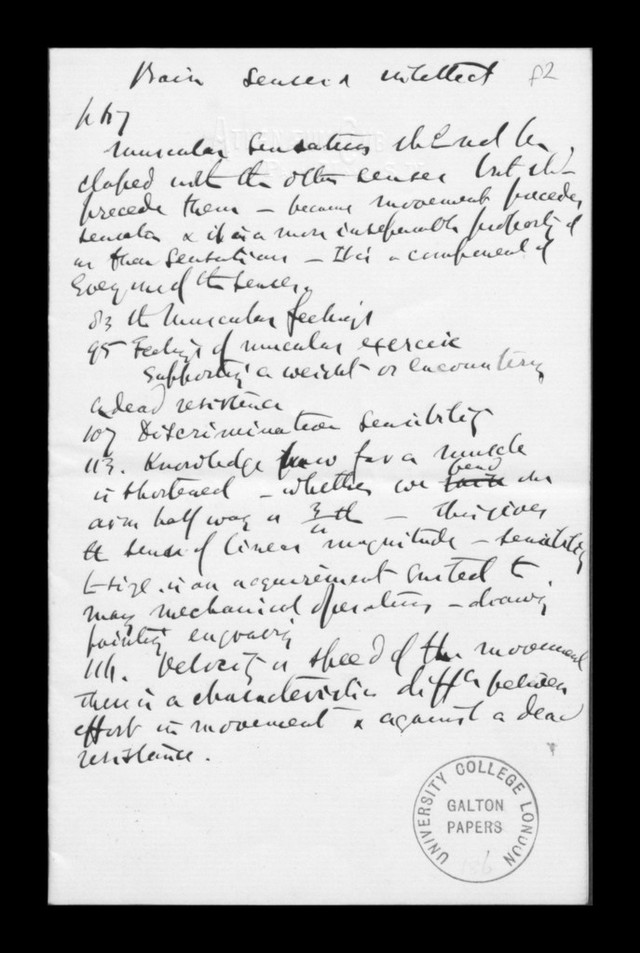 Bain Senses & intellect f2
p 67
muscular Sensations shd not be
classed with the other senses but shd
precede them – because movement precedes
sensation & it is a more inseparable property of
us than Sensations – It is a component of
Every one of the senses.
83 the Muscular feelings
95 Feelings of muscular exercise
Supporting a weight or encountering
a dead resistance
107 Discrimination Sensibility
113. Knowledge how far a muscle
is shortened – whether we bend an
arm half way or 3/4 th – this gives
the sense of linear magnitude – sensibility
to size is an acquirement suited to
many mechanical operations – drawing
painting engraving
114. Velocity or speed of the movement
there is a characteristic diffce between
effort in movement & against a dead
resistance.
UNIVERSITY COLLEGE LONDON
GALTON
PAPERS